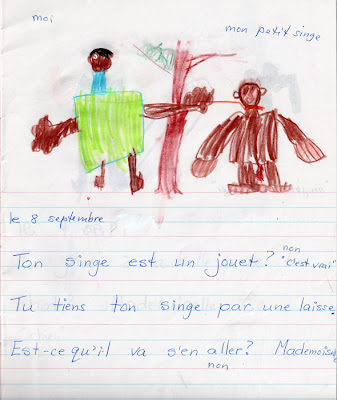 moi
mon petit singe
le 8 septembre
non
Ton singe est un jouet? "c'est vrai"
Tu tiens ton singe par une laisse.
Est-ce qu'il va s'en aller? Mademoiselle
non